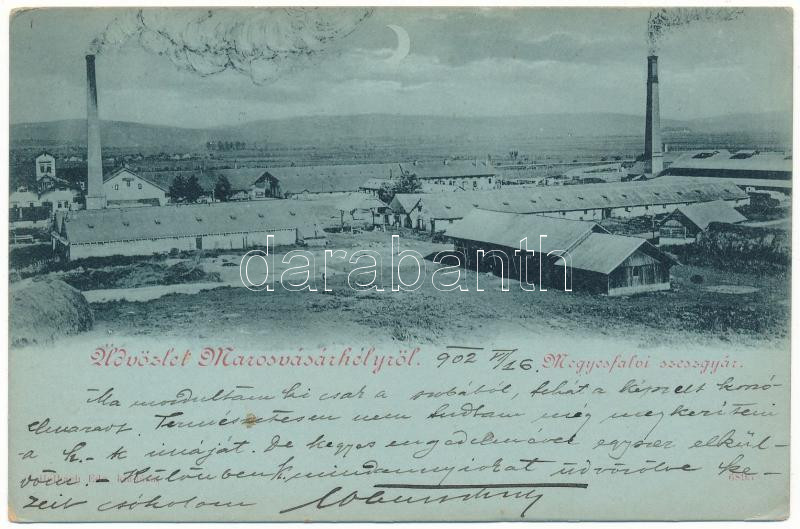 darabanth
Üdvözlet Marosvásárhelyről. 902 VI/16. Megyesfalvi szeszgyár.
Ma mozdultam ki csak a szobából, tehát a képzelt
elmaradt. Természetesen nem tudtam még megkeríteni
a k. k. imáját. De kegyes engedelmével egyszer elkül-
vön — Különben k. mindannyiokat üdvözölve ke-
zeit csókolom